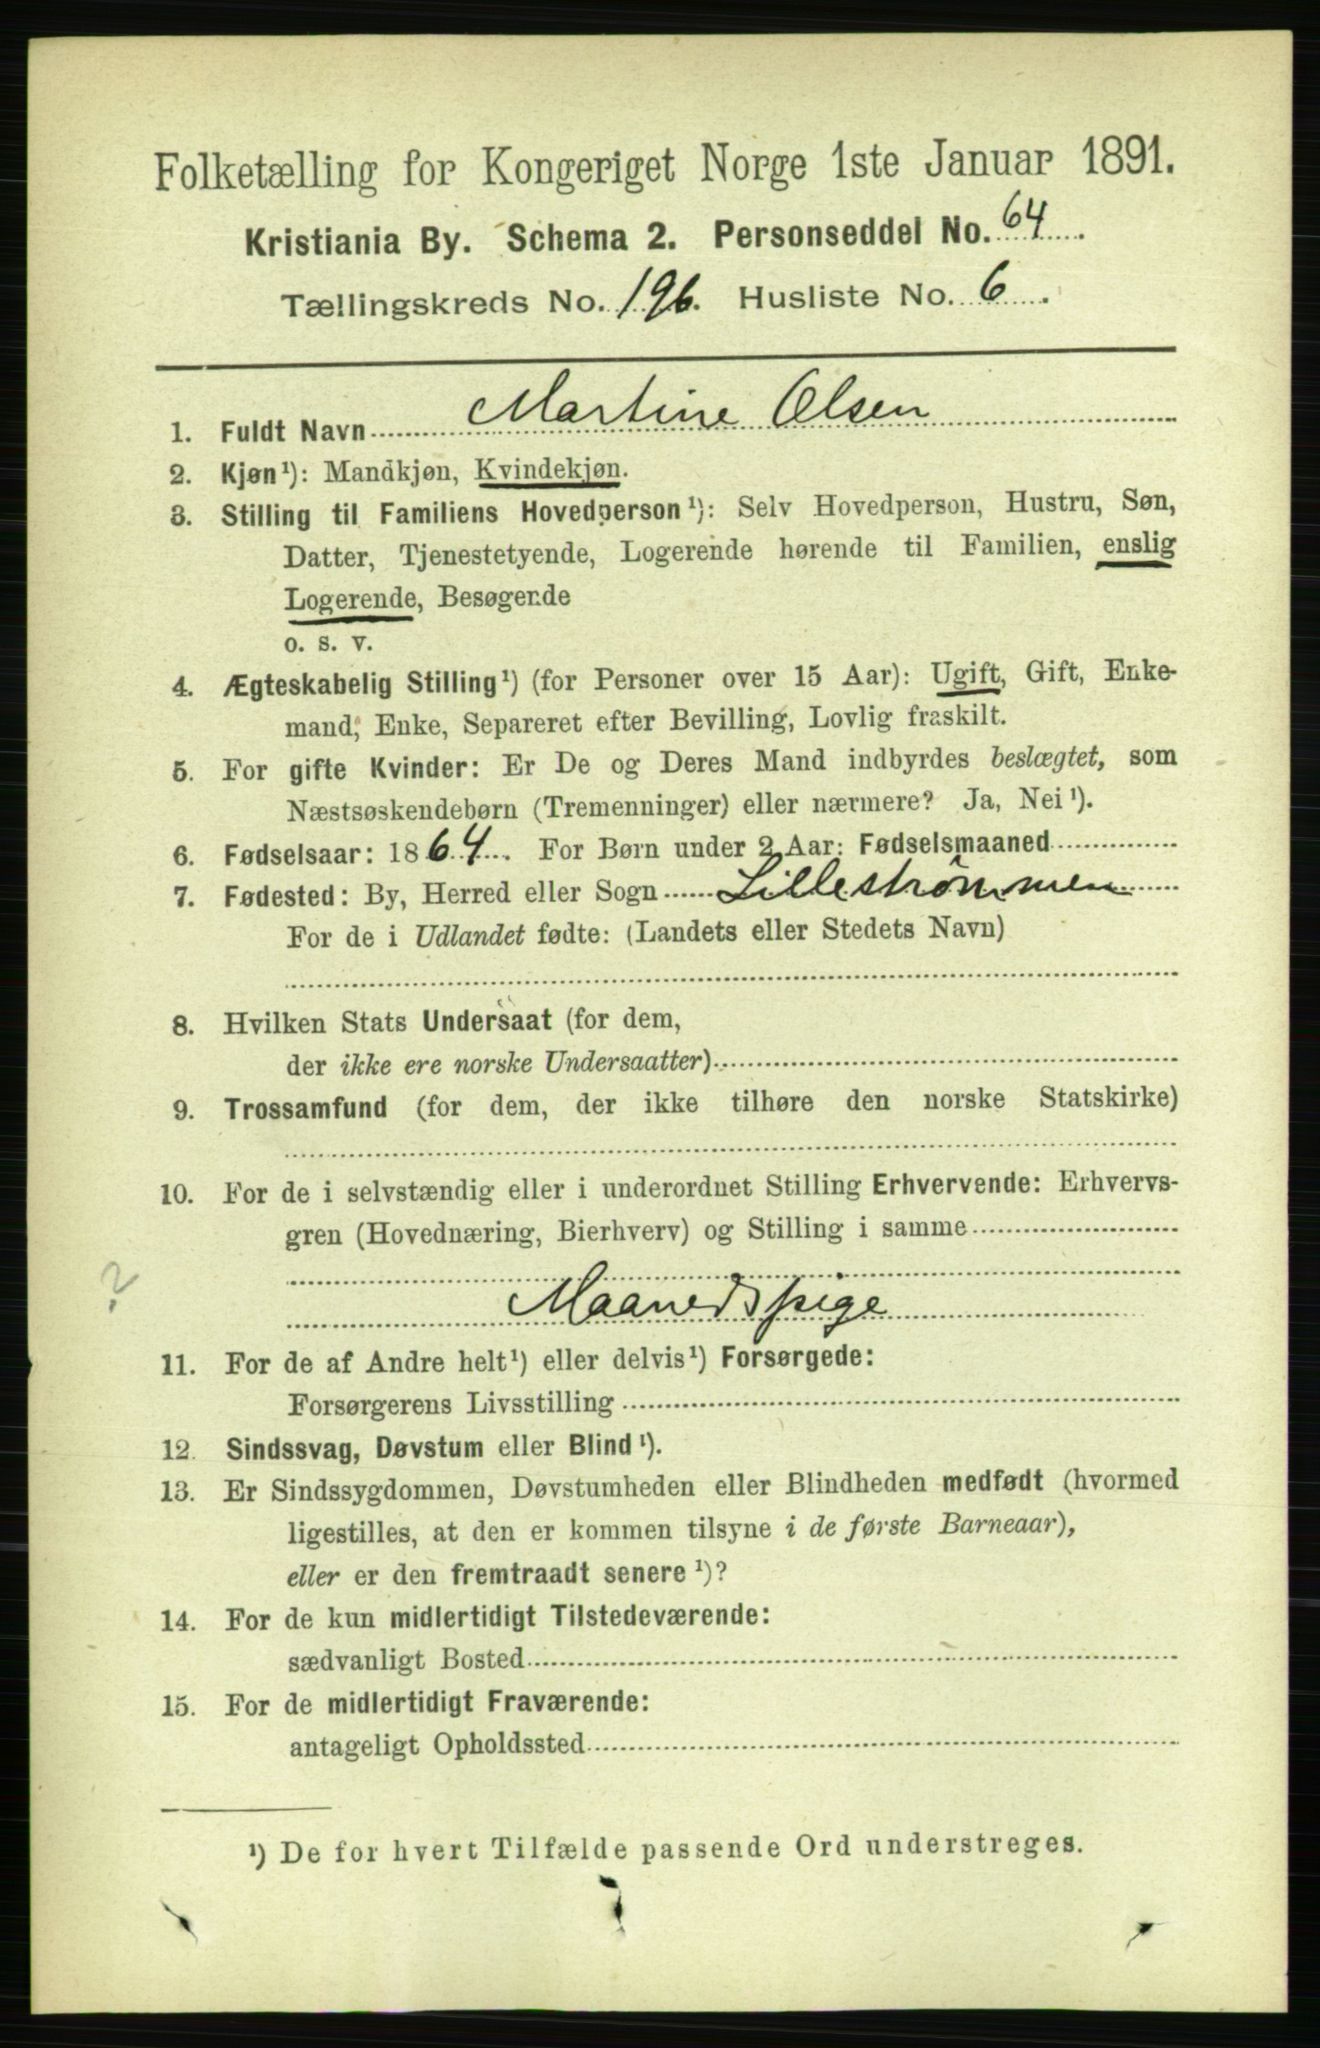 Folketælling for Kongeriget Norge 1ste Januar 1891.
Kristiania By. Schema 2. Personseddel No. 64.
Tællingskreds No. 196. Husliste No. 6.
1. Fuldt Navn Martine Olsen
2. Kjøn¹): Mandkjøn, Kvindekjøn.
3. Stilling til Familiens Hovedperson¹): Selv Hovedperson, Hustru, Søn,
Datter, Tjenestetyende, Logerende hørende til Familien, enslig
Logerende, Besøgende
o. s. v.
4. Ægteskabelig Stilling¹) (for Personer over 15 Aar): Ugift, Gift, Enke-
mand, Enke, Separeret efter Bevilling, Lovlig fraskilt.
5. For gifte Kvinder: Er De og Deres Mand indbyrdes beslægtet, som
Næstsøskendebørn (Tremenninger) eller nærmere? Ja, Nei¹).
6. Fødselsaar: 1864. For Børn under 2 Aar: Fødselsmaaned
7. Fødested: By, Herred eller Sogn Lillestrømmen
For de i Udlandet fødte: (Landets eller Stedets Navn)
8. Hvilken Stats Undersaat (for dem,
der ikke ere norske Undersaatter)
9. Trossamfund (for dem, der ikke tilhøre den norske Statskirke)
10. For de i selvstændig eller i underordnet Stilling Erhvervende: Erhvervs-
gren (Hovednæring, Bierhverv) og Stilling i samme
?
Maanedspige
11. For de af Andre helt¹) eller delvis¹) Forsørgede:
Forsørgerens Livsstilling
12. Sindssvag, Døvstum eller Blind¹).
13. Er Sindssygdommen, Døvstumheden eller Blindheden medfødt (hvormed
ligestilles, at den er kommen tilsyne i de første Barneaar),
eller er den fremtraadt senere¹)?
14. For de kun midlertidigt Tilstedeværende:
sædvanligt Bosted
15. For de midlertidigt Fraværende:
antageligt Opholdssted
¹) De for hvert Tilfælde passende Ord understreges.